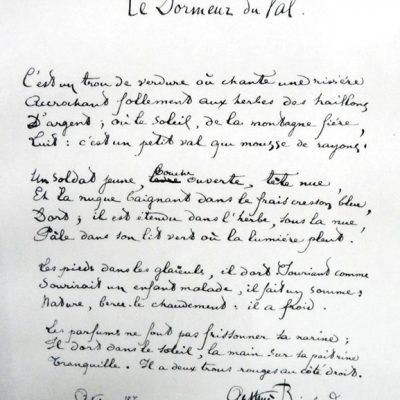 Le Dormeur du Val.
C'est un trou de verdure où chante une rivière
Accrochant follement aux herbes des haillons
D'argent ; où le soleil, de la montagne fière,
Luit : c'est un petit val qui mousse de rayons.
Un soldat jeune, bouche ouverte, tête nue,
Et la nuque baignant dans le frais cresson bleu,
Dort ; il est étendu dans l'herbe, sous la nue,
Pâle dans son lit vert où la lumière pleut.
Les pieds dans les glaïeuls, il dort. Souriant comme
Sourirait un enfant malade, il fait un somme :
Nature, berce-le chaudement : il a froid.
Les parfums ne font pas frissonner sa narine ;
Il dort dans le soleil, la main sur sa poitrine
Tranquille. Il a deux trous rouges au côté droit.
Arthur